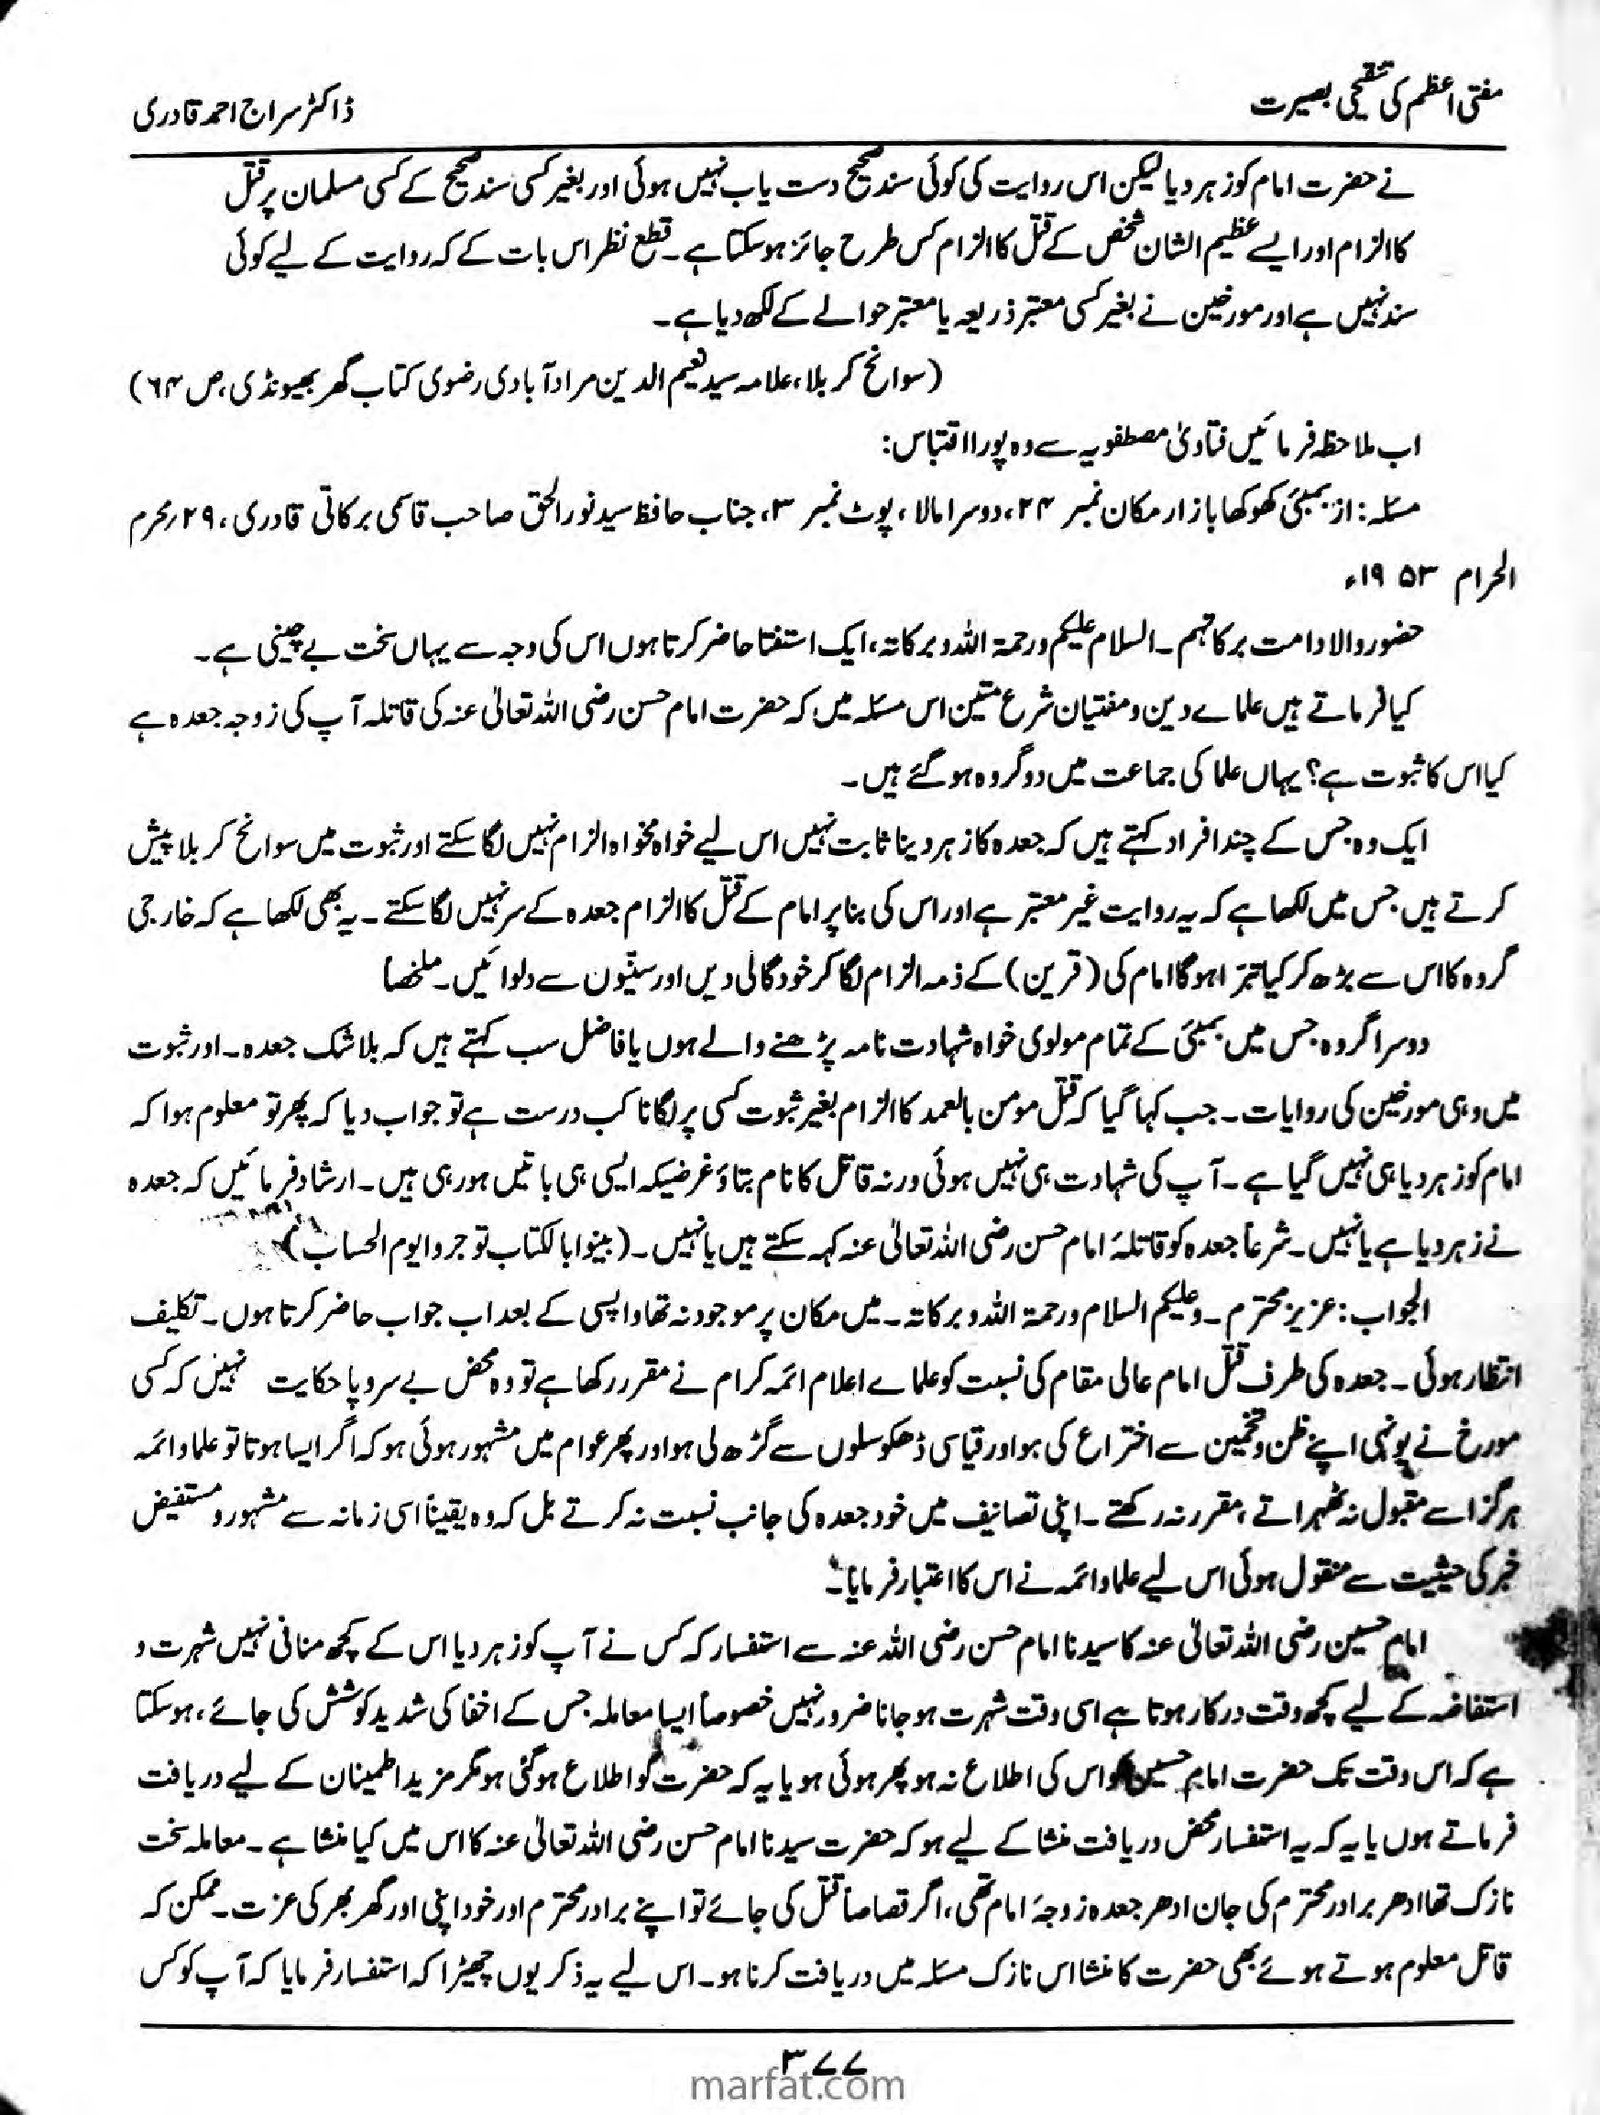 مفتی اعظم کی تنقیحی بصیرت
ڈاکٹر سراج احمد قادری
نے حضرت امام کو زہر دیا لیکن اس روایت کی کوئی سند صحیح دست یاب نہیں ہوئی اور بغیر کسی سند صحیح کے کسی مسلمان پر قتل
کا الزام اور ایسے عظیم الشان شخص کے قتل کا الزام کس طرح جائز ہو سکتا ہے۔ قطع نظر اس بات کے کہ روایت کے لیے کوئی
سند نہیں ہے اور مورخین نے بغیر کسی معتبر ذریعہ یا معتبر حوالے کے لکھ دیا ہے۔
(سوانح کربلا، علامہ سید نعیم الدین مراد آبادی رضوی کتاب گھر بھیونڈی، ص ۶۴)
اب ملاحظہ فرمائیں فتاویٰ مصطفویہ سے وہ پورا اقتباس:
مسئلہ: از بمبئی کھوکھا بازار مکان نمبر ۲۴، دوسرا مالا، پوٹ نمبر ۳، جناب حافظ سید نور الحق صاحب قاسمی برکاتی قادری، ۲۹؍ محرم
الحرام ۱۹۵۳ء
حضور والا دامت برکاتہم۔ السلام علیکم ورحمۃ اللہ وبرکاتہ، ایک استفتا حاضر کرتا ہوں اس کی وجہ سے یہاں سخت بے چینی ہے۔
کیا فرماتے ہیں علماے دین و مفتیان شرع متین اس مسئلہ میں کہ حضرت امام حسن رضی اللہ تعالیٰ عنہ کی قاتلہ آپ کی زوجہ جعدہ ہے
کیا اس کا ثبوت ہے؟ یہاں علما کی جماعت میں دو گروہ ہو گئے ہیں۔
ایک وہ جس کے چند افراد کہتے ہیں کہ جعدہ کا زہر دینا ثابت نہیں اس لیے خواہ مخواہ الزام نہیں لگا سکتے اور ثبوت میں سوانح کربلا پیش
کرتے ہیں جس میں لکھا ہے کہ یہ روایت غیر معتبر ہے اور اس کی بنا پر امام کے قتل کا الزام جعدہ کے سر نہیں لگا سکتے۔ یہ بھی لکھا ہے کہ خارجی
گروہ کا اس سے بڑھ کر کیا تبرّا ہوگا امام کی (قرین) کے ذمہ الزام لگا کر خود گالی دیں اور سنّیوں سے دلوائیں۔ ملخصا
دوسرا گروہ جس میں بمبئی کے تمام مولوی خواہ شہادت نامہ پڑھنے والے ہوں یا فاضل سب کہتے ہیں کہ بلا شک جعدہ۔ اور ثبوت
میں وہی مورخین کی روایات۔ جب کہا گیا کہ قتل مومن بالعمد کا الزام بغیر ثبوت کسی پر لگانا کب درست ہے تو جواب دیا کہ پھر تو معلوم ہوا کہ
امام کو زہر دیا ہی نہیں گیا ہے۔ آپ کی شہادت ہی نہیں ہوئی ورنہ قاتل کا نام بتاؤ غرضیکہ ایسی ہی باتیں ہو رہی ہیں۔ ارشاد فرمائیں کہ جعدہ
نے زہر دیا ہے یا نہیں۔ شرعاً جعدہ کو قاتلۂ امام حسن رضی اللہ تعالیٰ عنہ کہہ سکتے ہیں یا نہیں۔ (بینوا بالکتاب توجروا یوم الحساب)
الجواب: عزیز محترم۔ وعلیکم السلام ورحمۃ اللہ وبرکاتہ۔ میں مکان پر موجود نہ تھا واپسی کے بعد اب جواب حاضر کرتا ہوں۔ تکلیف
انتظار ہوئی۔ جعدہ کی طرف قتل امام عالی مقام کی نسبت کو علماے اعلام ائمہ کرام نے مقرر رکھا ہے تو وہ محض بے سروپا حکایت نہیں کہ کسی
مورخ نے یونہی اپنے ظن و تخمین سے اختراع کی ہو اور قیاسی ڈھکوسلوں سے گڑھ لی ہو اور پھر عوام میں مشہور ہوئی ہو کہ اگر ایسا ہوتا تو علما و ائمہ
ہرگز اسے مقبول نہ ٹھہراتے، مقرر نہ رکھتے۔ اپنی تصانیف میں خود جعدہ کی جانب نسبت نہ کرتے بل کہ وہ یقیناً اسی زمانہ سے مشہور و مستفیض
خبر کی حیثیت سے منقول ہوئی اس لیے علما و ائمہ نے اس کا اعتبار فرمایا۔
امام حسین رضی اللہ تعالیٰ عنہ کا سیدنا امام حسن رضی اللہ عنہ سے استفسار کہ کس نے آپ کو زہر دیا اس کے کچھ منافی نہیں شہرت و
استفاضہ کے لیے کچھ وقت درکار ہوتا ہے اسی وقت شہرت ہو جانا ضرور نہیں خصوصاً ایسا معاملہ جس کے اخفا کی شدید کوشش کی جائے، ہو سکتا
ہے کہ اس وقت تک حضرت امام حسین کو اس کی اطلاع نہ ہو پھر ہوئی ہو یا یہ کہ حضرت کو اطلاع ہو گئی ہو مگر مزید اطمینان کے لیے دریافت
فرماتے ہوں یا یہ کہ یہ استفسار محض دریافت منشا کے لیے ہو کہ حضرت سیدنا امام حسن رضی اللہ تعالیٰ عنہ کا اس میں کیا منشا ہے۔ معاملہ سخت
نازک تھا ادھر برادر محترم کی جان ادھر جعدہ زوجۂ امام تھی، اگر قصاصاً قتل کی جائے تو اپنے برادر محترم اور خود اپنی اور گھر بھر کی عزت۔ ممکن کہ
قاتل معلوم ہوتے ہوئے بھی حضرت کا منشا اس نازک مسئلہ میں دریافت کرنا ہو۔ اس لیے یہ ذکر یوں چھیڑا کہ استفسار فرمایا کہ آپ کو کس
۳۷۷
marfat.com